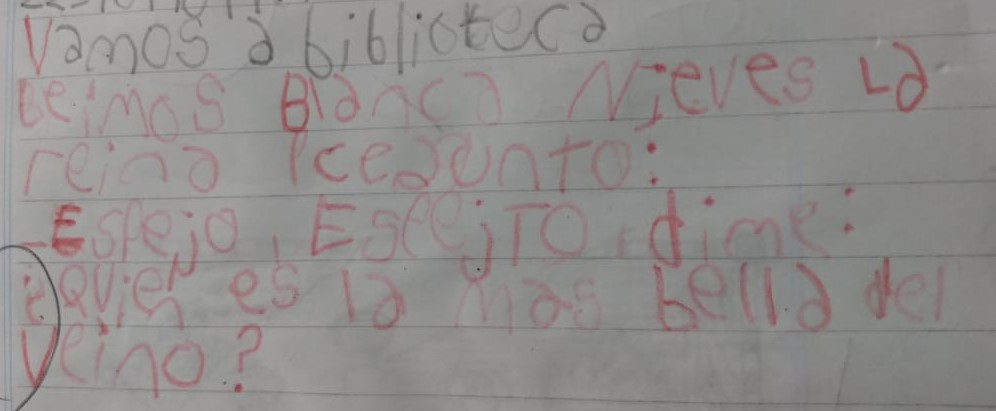 Vamos a biblioteca
Leimos Blanca Nieves La
reina
-Espejo, Espejito, dime:
¿Quien es la mas bella del
reino?